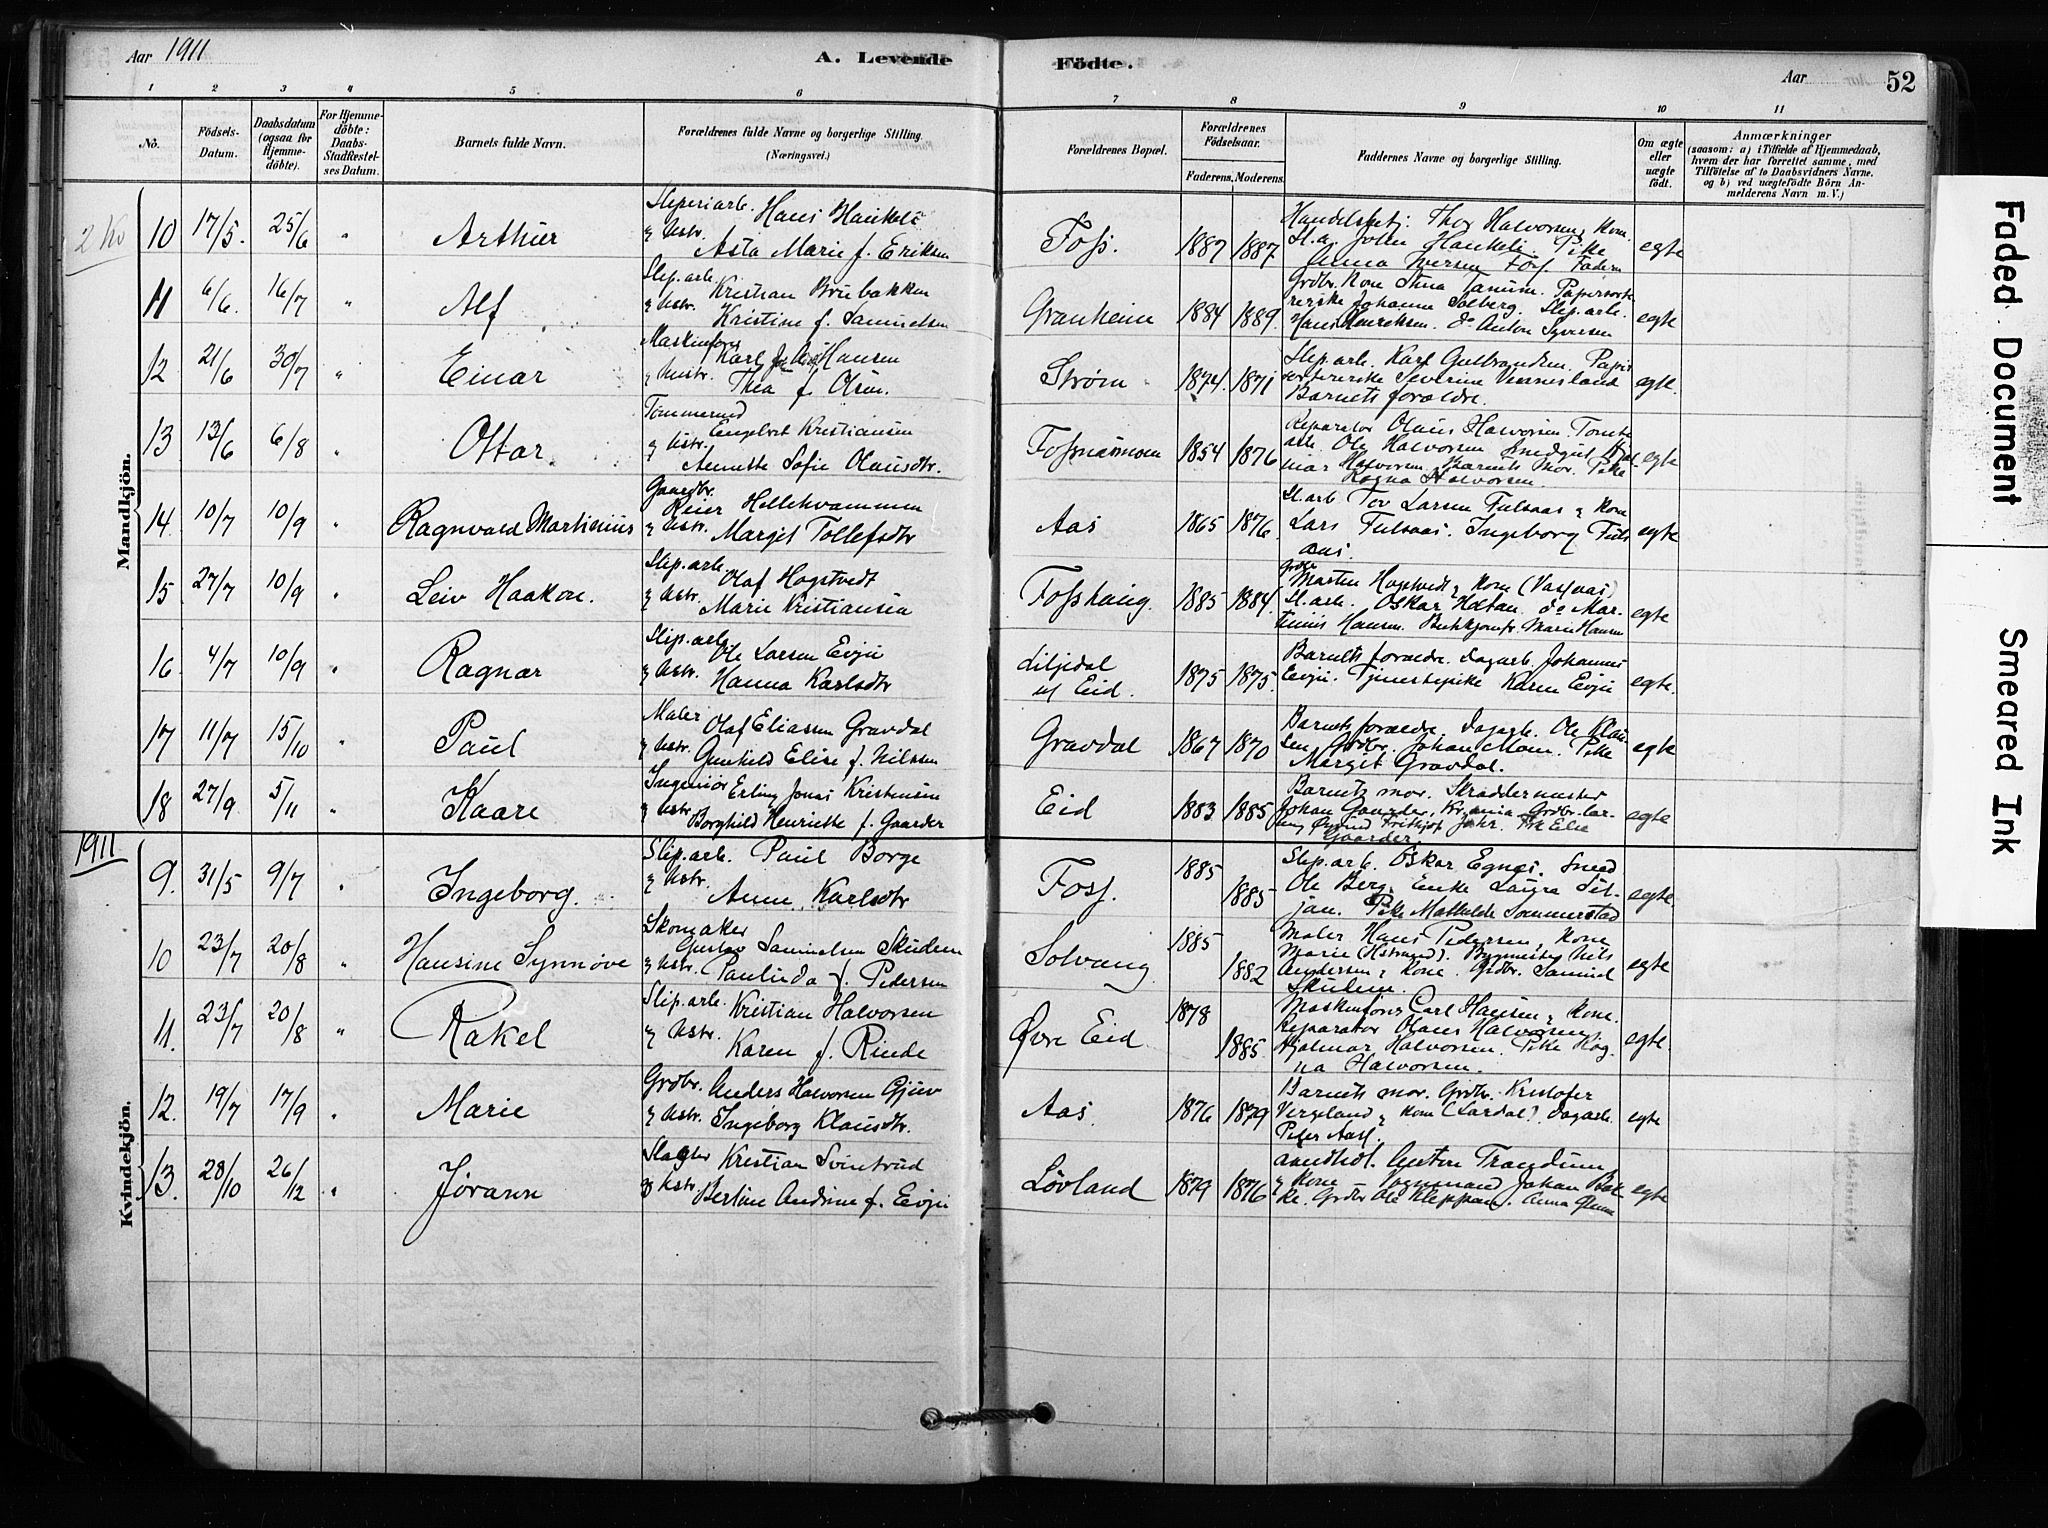 Aar 1911
A. Levende
Födte.
Aar
52
1 2 3 4 5 6 7 8 9 10 11
No.
Födsels-Datum.
Daabsdatum (ogsaa for Hjemme-döbte).
For Hjemme-döbte: Daabs-Stadfæstel-ses Datum.
Barnets fulde Navn.
Forældrenes fulde Navne og borgerlige Stilling. (Næringsvei.)
Forældrenes Bopæl.
Forældrenes Födselsaar.
Faderens. Moderens.
Faddernes Navne og borgerlige Stilling.
Om ægte eller uægte födt.
Anmærkninger
(saasom: a) i Tilfælde af Hjemmedaab, hvem der har forrettet samme, med Tilföielse af to Daabsvidners Navne, og b) ved uægtefödte Börn An-melderens Navn m. V.)
Mandkjön.
10 17/5. 25/6 " Arthur
Sliperiarb. Hans Haukeli
& Hstr. Asta Marie f. Eriksen
Foss. 1887 1887.
Handelsbetj: Thor Halvorsen & kone.
Sl.a. John Haukeli. Pike
Anna Iversen Fos. Faderen
egte
11 6/6. 16/7 " Alf
Slip.arb. Kristian Brubakken
& Hstr. Kristine f. Samuelsen
Granheim 1884 1889.
Grdbr. Kone Tanum. Papirsorte-
rerske Johanne Solberg. Slip.arb.
Hans Henriksen. do Anton Syversen
egte
12 21/6 30/7 " Einar
Maskinfører Karl Hansen
& Hustr. Thea f. Olsen.
Strøm 1874. 1871
Slip.arb. Karl Gulbrandsen. Papir
sortererske Severine
Barnets forældre.
egte.
13 13/6 6/8 " Ottar
Tømmermd Engebret Kristiansen
& Hstr. Annette Sofie Olausdtr.
Fossnæsmoen 1854 1876
Reparatør Olaus Halvorsen. Tomte
arb. Ole Halvorsen Hjal-
mar Halvorsen. Barnets mor. Pike
Ragna Halvorsen.
egte
14. 10/7 10/9 " Ragnvald Martinius
Gaardbr. Reier Hellekvammen
& Hstr. Margit Tollefsdtr
Aas 1865 1876.
Sl.arb. Tov Larsen Fulsaas & kone
Lars Fulsaas. Ingeborg Fuls
aas.
egte
15. 27/7 10/9 " Leiv Haakon.
Slip.arb. Olaf Hogstvedt
& Hstr. Marie Kristiansen
Fosshaug. 1885 1884.
Grdbr. Marten Hogstvedt & kone (Vasvas)
Sl.arb. Oskar Holtan. do Mar-
tinius Hansen. Butikjomfr. Marie Hansen
egte
16 4/7 10/9 " Ragnar
Slip.arb. Ole Larsen Evju
& Hstr. Hanna Karlsdtr
Liljedal u/ Eid. 1875 1875.
Barnets forældre. Dagarb. Johannes
Evju. Tjenestepike Karen Evju
egte.
17 11/7 15/10 " Paul
Maler Olaf Eliassen Gravdal
& Hstr. Gunhild Elise f. Nilssen
Gravdal 1867 1870
Barnets forældre. Dagarb. Ole Klau-
sen, Grdbr. Johan Moen. Pike
Margit Gravdal.
egte
18 27/9. 5/11 " Kaare
Ingeniør Erling Jonas Kristensen
& Hstr. Borghild Henriette f. Gaarder
Eid 1883 1885
Barnets mor. Skræddermester
Johan Gaarder, Kr.ania. Grdbr. Lar-
Fritjof Jahr. Pike Else
Gaarder.
egte
1911
Kvindekjön.
9. 31/5 9/7 " Ingeborg.
Slip.arb. Paul Borge
& Hstr. Anne Karlsdtr
Foss. 1885 1885
Slip.arb. Oskar Egnes. Smed
Ole Berg. Enke Laura Sil-
jan. Pike Mathilde Sommerstad
egte
10 23/7 20/8 " Hansine Synnøve
Skomaker Gustav Samuelsen Skudem
& Hstr. Paulinda f. Pedersen
Solvang 1885 1882
Maler Hans Pedersen & kone
Marie (Hstrand). Bygmester Nils
Andersen & Kone. Grdbr. Samuel
Skudem.
egte
11. 23/7 20/8 " Rakel
Slip.arb. Kristian Halvorsen
& Hstr. Karen f. Rinde
Øvre Eid 1878 1885
Maskinfører Carl Hansen & kone.
Reparatør Olaus Halvorsen
Hjalmar Halvorsen. Pike Rag-
na Halvorsen.
egte.
12. 19/7 17/9 " Marie
Grdbr. Anders Halvorsen Gjuv
& Hstr. Ingeborg Klausdtr.
Aas. 1876 1879
Barnets mor. Grdbr. Kristofer
Vergeland & kone (Lardal). Dagarb.
Peter Aas.
egte
13. 28/10 26/12 " Jørann
Slagter Kristian Svintrud
& Hstr. Bertine Andrine f. Evju
Lövland 1879 1876
Anton Trandum
& kone Johan Bak-
ke. Grdbr Ole Kleppan. Anna
egte
Faded Document
Smeared Ink